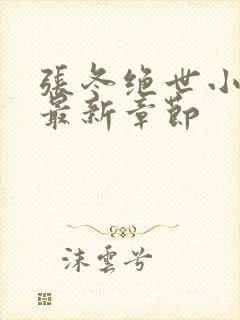 張冬绝世小
最新章節
沫雲兮